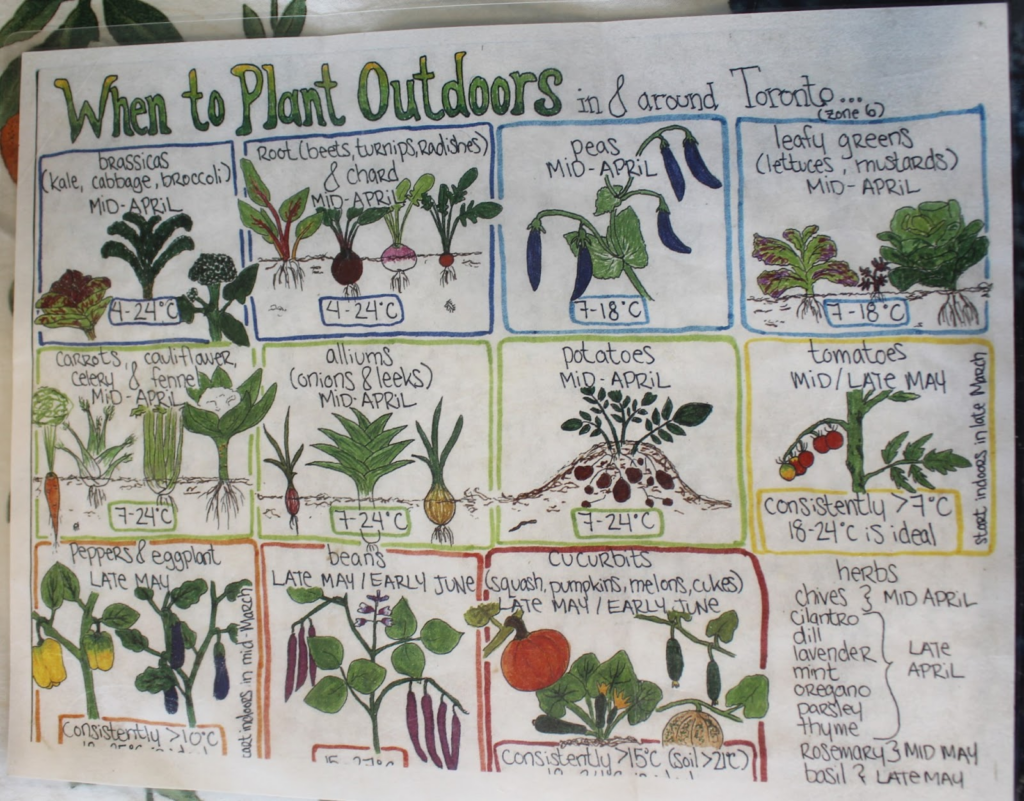 When to Plant Outdoors in & around Toronto...
(zone 6)
brassicas
(kale, cabbage, broccoli)
MID-APRIL
4-24°C
ROOT (beets, turnips, Radishes)
& chard
MID-APRIL
4-24°C
peas
MID-APRIL
7-18°C
leafy greens
(lettuces, mustards)
MID-APRIL
7-18°C
carrots, cauliflower,
celery & fennel
MID-APRIL
7-24°C
alliums
(onions & leeks)
MID-APRIL
7-24°C
potatoes
MID-APRIL
7-24°C
tomatoes
MID/LATE MAY
consistently >7°C
18-24°C is ideal
start indoors in late March
peppers & eggplant
LATE MAY
consistently >10°C
start indoors in mid-March
beans
LATE MAY / EARLY JUNE
15-27°C
CUCURBITS
(squash, pumpkins, melons, cukes)
LATE MAY / EARLY JUNE
consistently >15°C (soil >21°C)
herbs
chives } MID APRIL
cilantro
dill
lavender
mint
oregano
parsley
thyme
LATE
APRIL
Rosemary } MID MAY
basil } LATE MAY